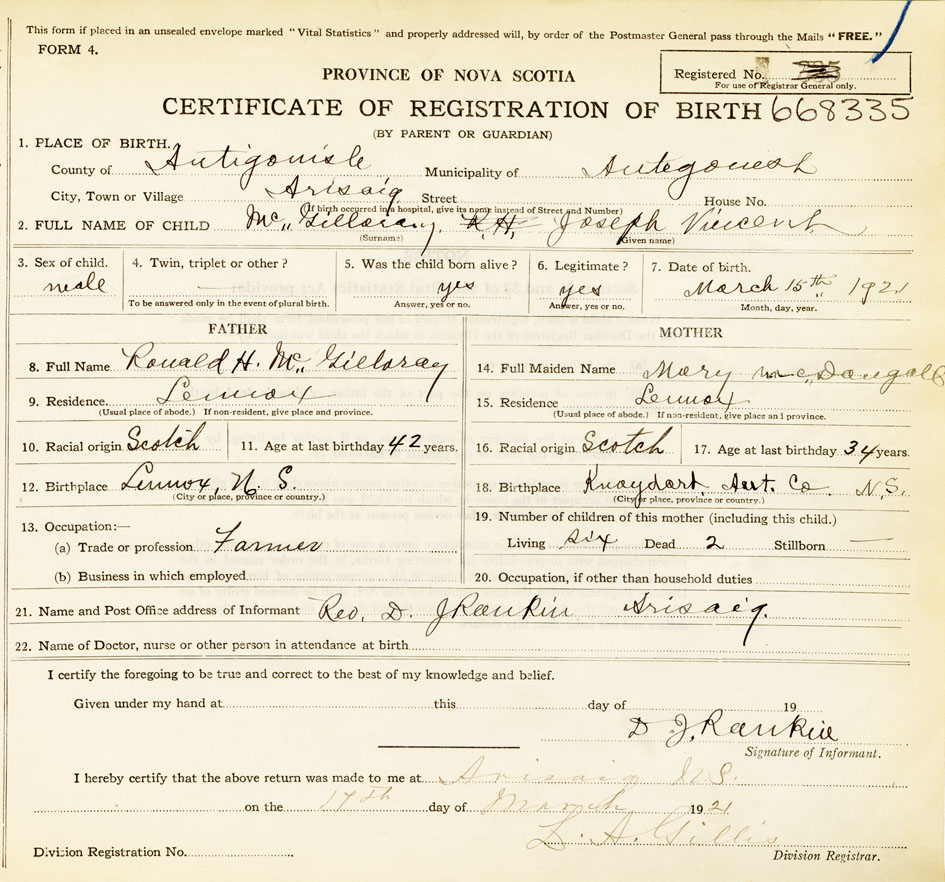 This form if placed in an unsealed envelope marked "Vital Statistics" and properly addressed will, by order of the Postmaster General pass through the Mails "FREE."
FORM 4.
Registered No.
For use of Registrar General only.
PROVINCE OF NOVA SCOTIA
CERTIFICATE OF REGISTRATION OF BIRTH 668335
(BY PARENT OR GUARDIAN)
1. PLACE OF BIRTH.
County of Antigonish Municipality of Antigonish
City, Town or Village Arisaig Street House No.
(If birth occurred in a hospital, give its name instead of Street and Number)
2. FULL NAME OF CHILD Mc Gillvray R.H. Joseph Vincent
(Surname) (Given name)
3. Sex of child. 4. Twin, triplet or other ? 5. Was the child born alive ? 6. Legitimate ? 7. Date of birth.
male yes yes March 15th 1921
To be answered only in the event of plural birth. Answer, yes or no. Answer, yes or no. Month, day, year.
FATHER
8. Full Name Ronald H. Mc Gillvray
9. Residence. Lennox
(Usual place of abode.) If non-resident, give place and province.
10. Racial origin Scotch 11. Age at last birthday 42 years.
12. Birthplace Lennox, N. S.
(City or place, province or country.)
13. Occupation:—
(a) Trade or profession Farmer
(b) Business in which employed
MOTHER
14. Full Maiden Name Mary McDougall
15. Residence Lennox
(Usual place of abode.) If non-resident, give place and province.
16. Racial origin Scotch 17. Age at last birthday 34 years.
18. Birthplace Knoydart, Ant. Co. N.S.
(City or place, province or country.)
19. Number of children of this mother (including this child.)
Living six Dead 2 Stillborn —
20. Occupation, if other than household duties
21. Name and Post Office address of Informant Rev. D. J Rankin Arisaig.
22. Name of Doctor, nurse or other person in attendance at birth
I certify the foregoing to be true and correct to the best of my knowledge and belief.
Given under my hand at this day of 19
D. J. Rankin
Signature of Informant.
I hereby certify that the above return was made to me at Arisaig N.S.
on the 17th day of March 1921
L. A. Gillis
Division Registration No. Division Registrar.